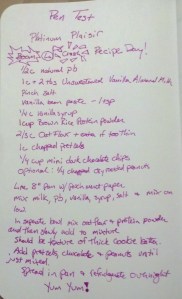 Pen Test
Platinum Plaisir
Recipe Day!
1/2c natural pb
1c + 2 tbs Unsweetened Vanilla Almond Milk
pinch salt
vanilla bean paste - 1 tsp
1/4c vanilla syrup
1 cup Brown Rice Protein powder
2/3c Oat Flour + extra if too thin
1c chopped pretzels
1/4 cup mini dark chocolate chips
optional: 1/4 chopped dry roasted peanuts
Line 8" pan w/ parchment paper
mix milk, pb, vanilla, syrup, salt mix on
low.
In separate bowl mix oat flour + protein powder
and then slowly add to mixture
Should be texture of thick cookie batter.
Add pretzels, chocolate + peanuts until
just mixed.
Spread in pan + refrigerate overnight
Yum Yum!